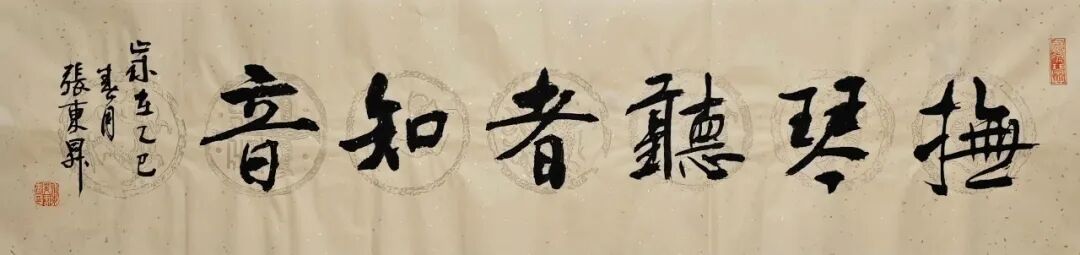 撫琴聽者知音
歲在乙巳
春月
張東昇